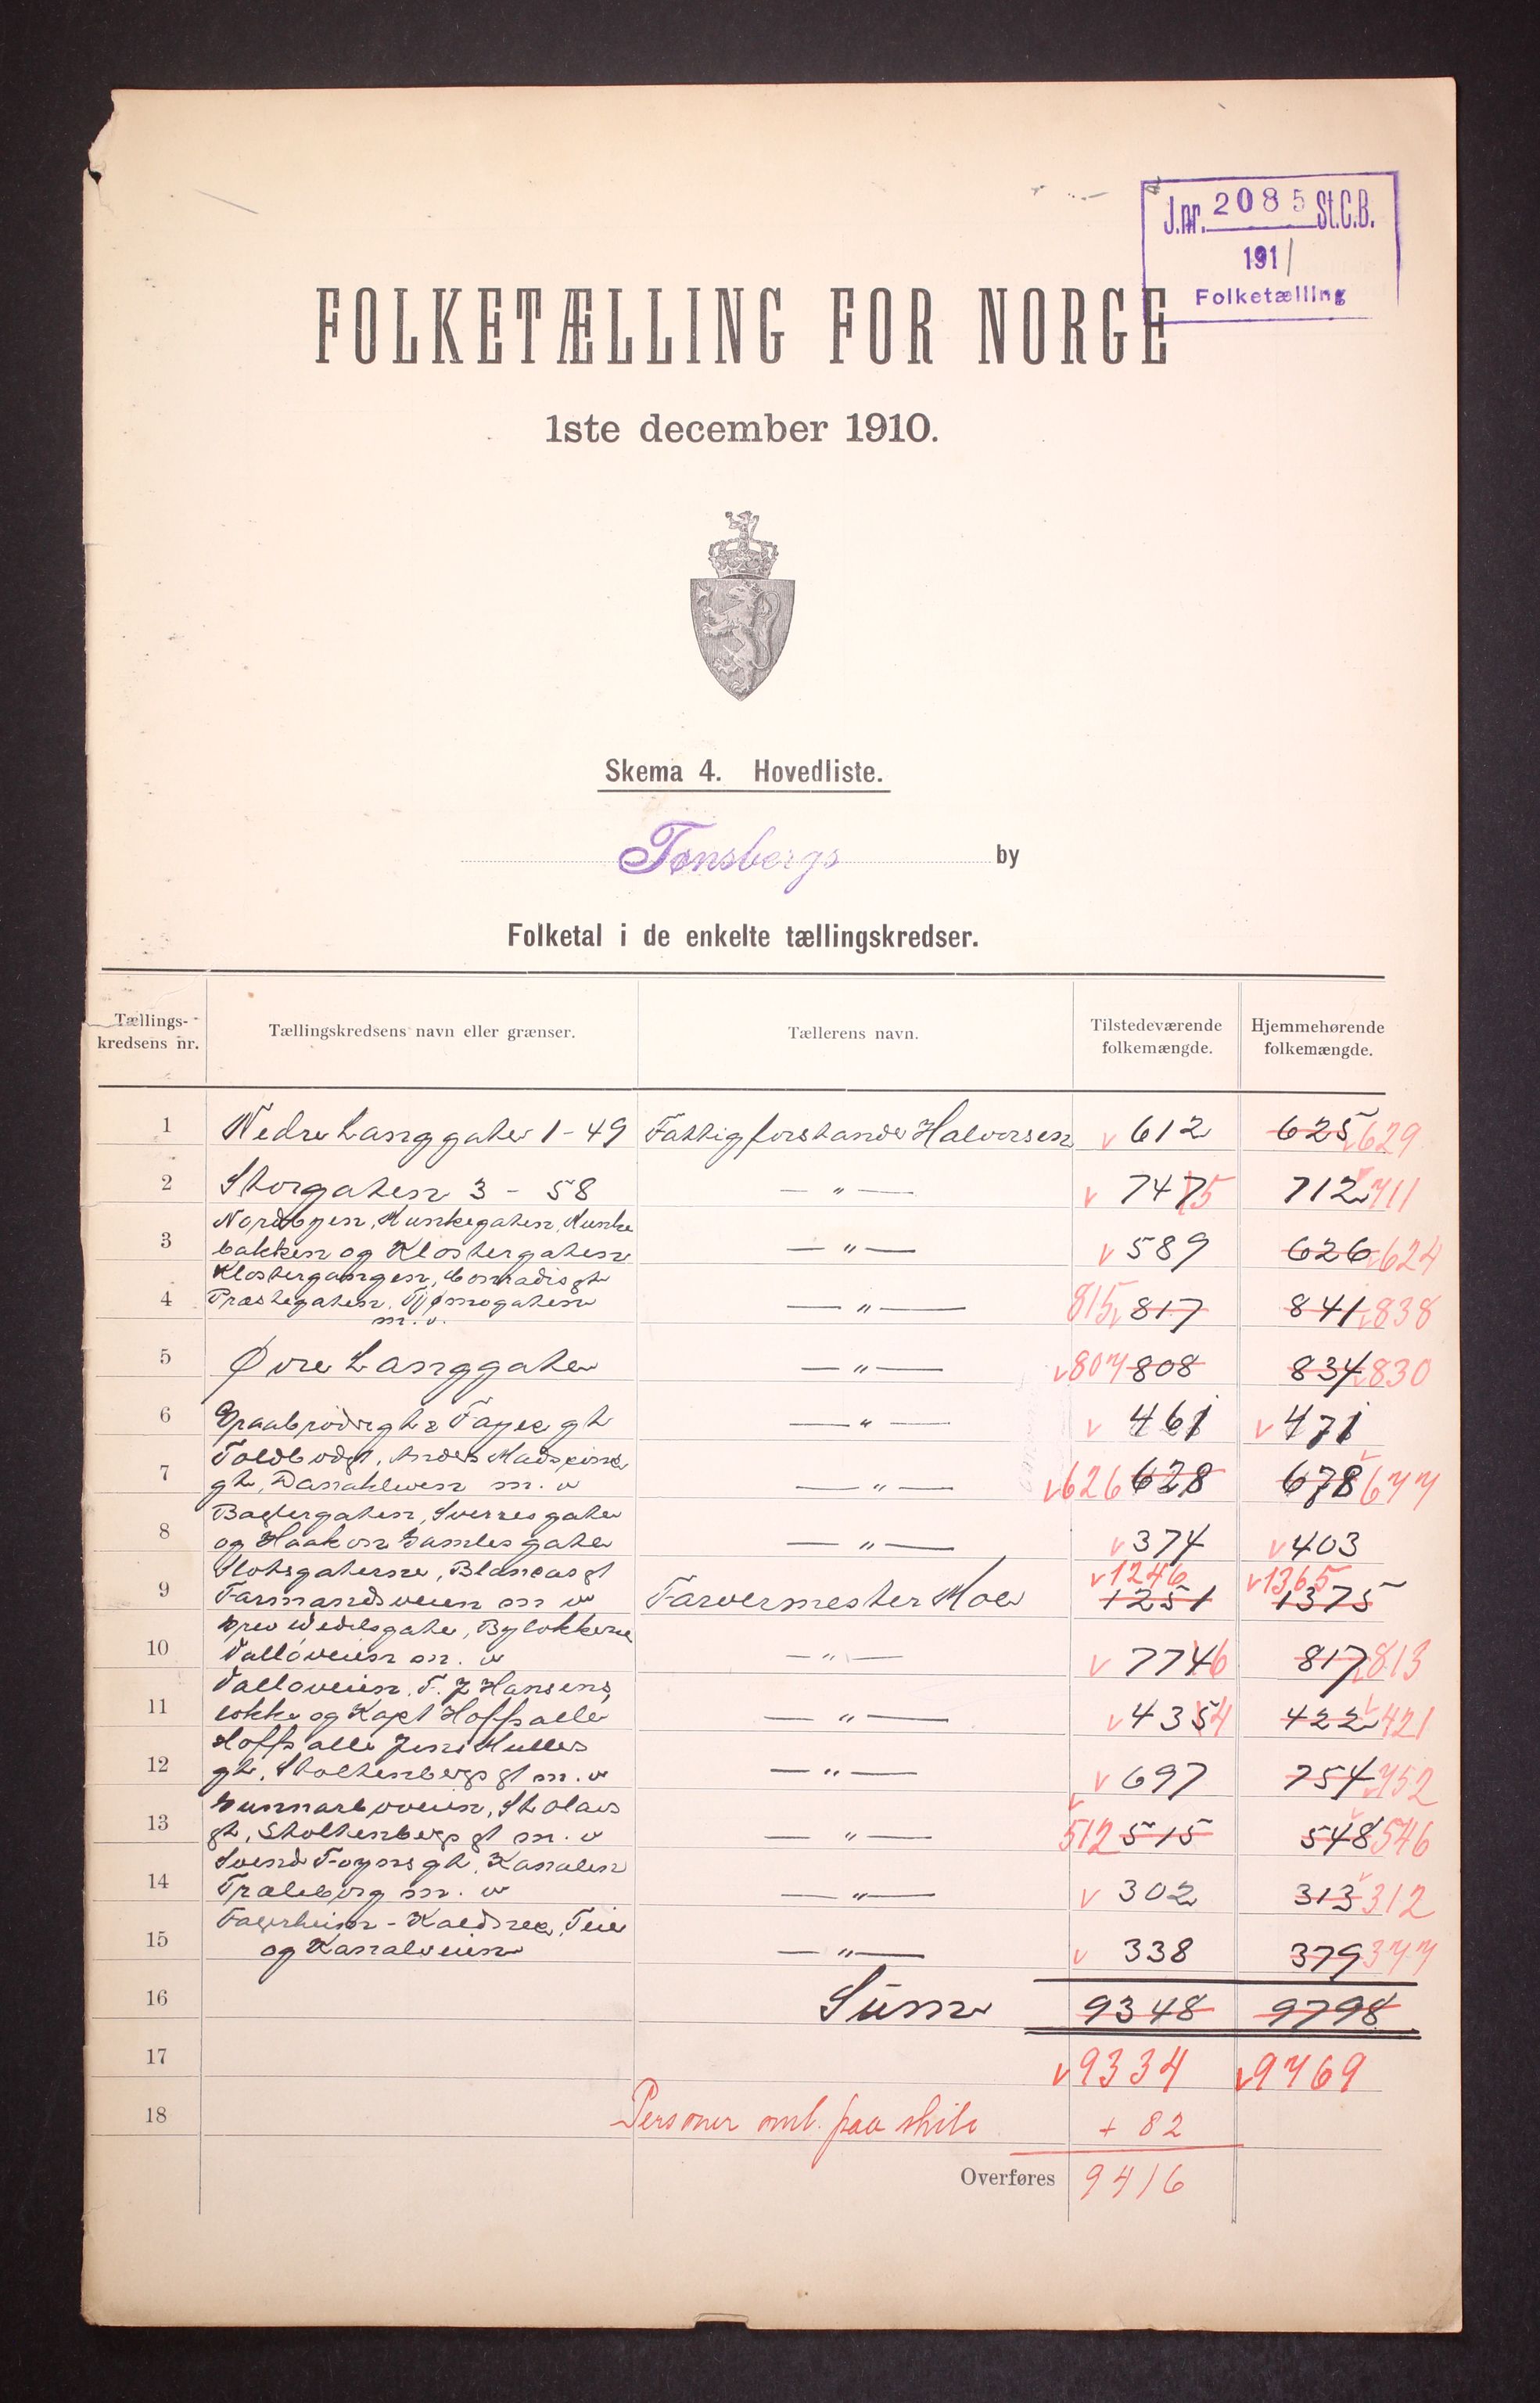 J.nr. 2085 St.C.B.
191/
Folketælling
FOLKETÆLLING FOR NORGE
1ste december 1910.
Skema 4. Hovedliste.
Tønsbergs by
Folketal i de enkelte tællingskredser.
Tællings-kredsens nr. Tællingskredsens navn eller grænser. Tællerens navn. Tilstedeværende folkemængde. Hjemmehørende folkemængde.
1 Nedre Langgate 1-49 Fattigforstander Halvorsen v 612 625 v629
2 Storgaten 3 - 58 — " — v 7475 712 711
Nordbyen, Munkegaten, Munke
3 bakken og Klostergaten — " — v 589 626 v624
Klostergangen, Conradis gt
4 Præstegaten, Tjømogaten — " — 815 v 817 841 v838
m. v.
5 Øvre Langgate — " — v807 808 834 v830
6 Graabrødregt & Fayes gt — " — v 461 v 471
Toldbodgt, Anders Madsens
7 gt, m. v — " — v626 628 678 677
Baglergaten, Sverresgate
8 og Haakon Gamles gate — " — v374 v403
Slotsgaterne, Blancas gt v1246 v1365
9 Farmandsveien m v Farvermester Moe 1251 1375
Grev Wedelsgate, Byløkkerne
10 Valløveien m. v — " — v 7746 817 v813
Valløveien, F. J Hansens
11 løkke og Kapt Hoffs alle — " — v4354 422 v421
Hoffs alle Jens Mullers
12 gt, Stoltenbergs gt m. v — " — v 697 754 v752
Gunnarboveien, St Olavs
13 gt, Stoltenbergs gt m. v — " — 512 515 548 546
Svend Foyns gt, Kanalen
14 Træleborg m. v — " — v 302 313 312
Fagerheim - Kaldnes, Teie
15 og Kanalveien — " — v 338 379 377
16 Sum 9348 9798
17 v9334 v9769
18 Personer omb. paa skib + 82
Overføres 9416